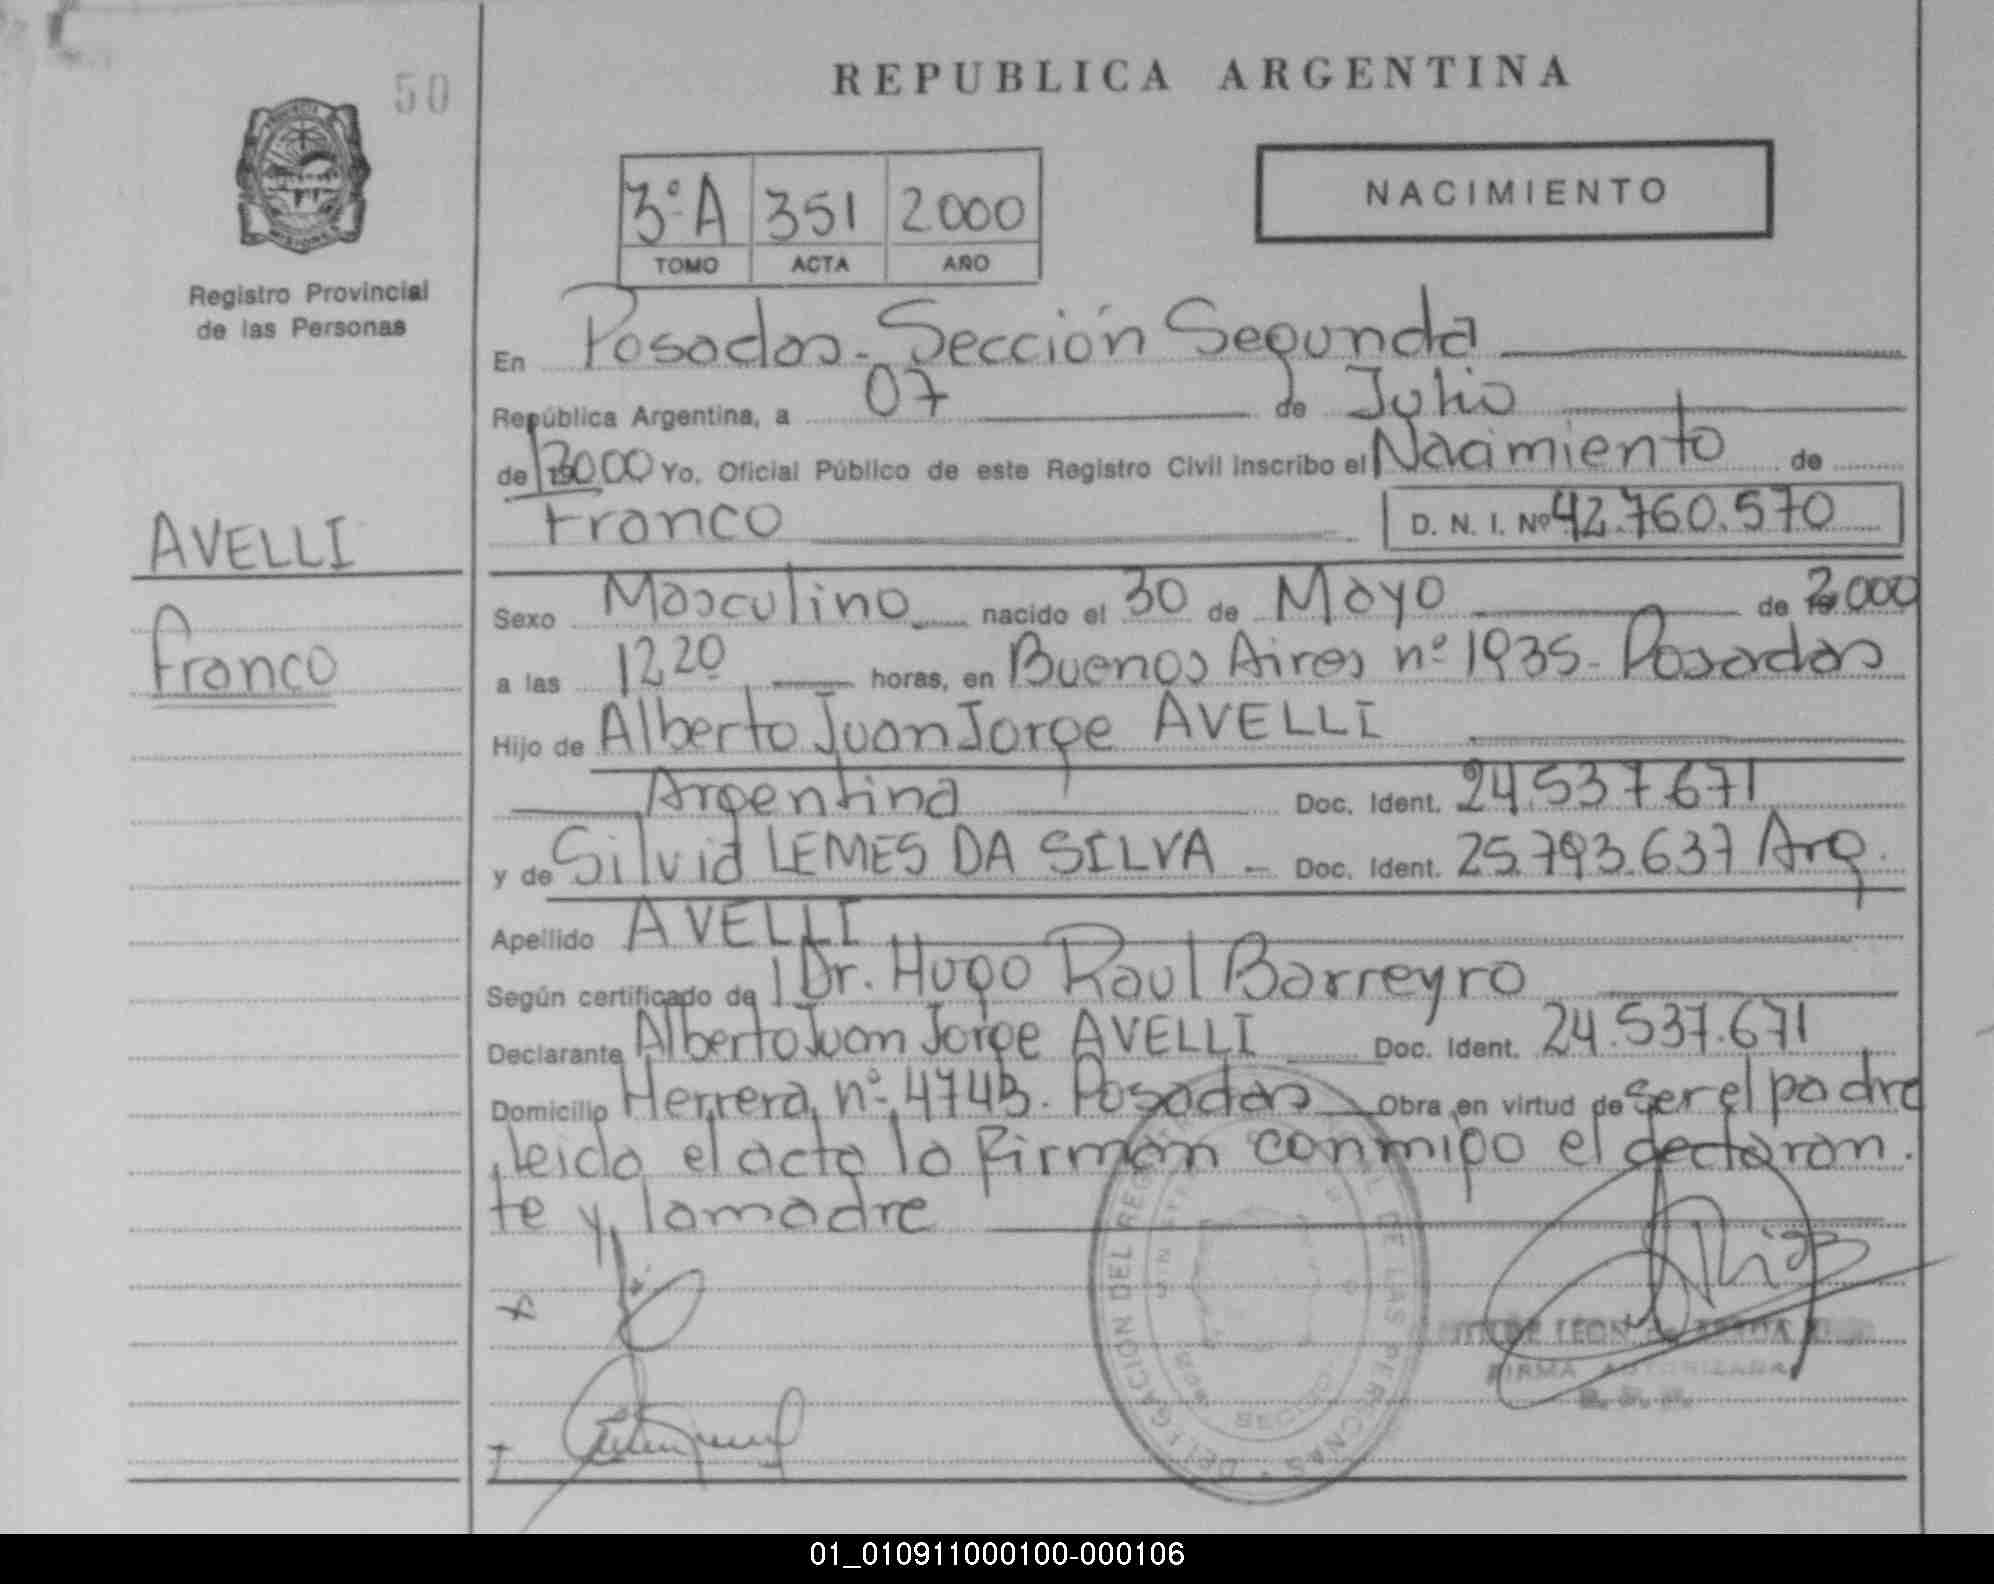 50
REPUBLICA ARGENTINA
MISIONES
Registro Provincial
de las Personas
3ºA 351 2000
TOMO ACTA AÑO
NACIMIENTO
En Posadas - Sección Segunda
República Argentina, a 07 de Julio
de 2000 Yo, Oficial Público de este Registro Civil inscribo el Nacimiento de
Franco D. N. I. Nº 42.760.570
AVELLI
Franco
Sexo Masculino nacido el 30 de Mayo de 2.000
a las 1220 horas, en Buenos Aires nº 1935 - Posadas
Hijo de Alberto Juan Jorge AVELLI
Argentina Doc. Ident. 24.537.671
y de Silvia LEMES DA SILVA - Doc. Ident. 25.793.637 Arg.
Apellido AVELLI
Según certificado de Dr. Hugo Raul Barreyro
Declarante Alberto Juan Jorge AVELLI Doc. Ident. 24.537.671
Domicilio Herrera nº 4743. Posadas Obra en virtud de ser el padre
leida el acta la firman conmigo el declaran.
te y la madre
DELEGACIÓN DEL REGISTRO DE LAS PERSONAS
LEON
FIRMA AUTORIZADA
01_010911000100-000106